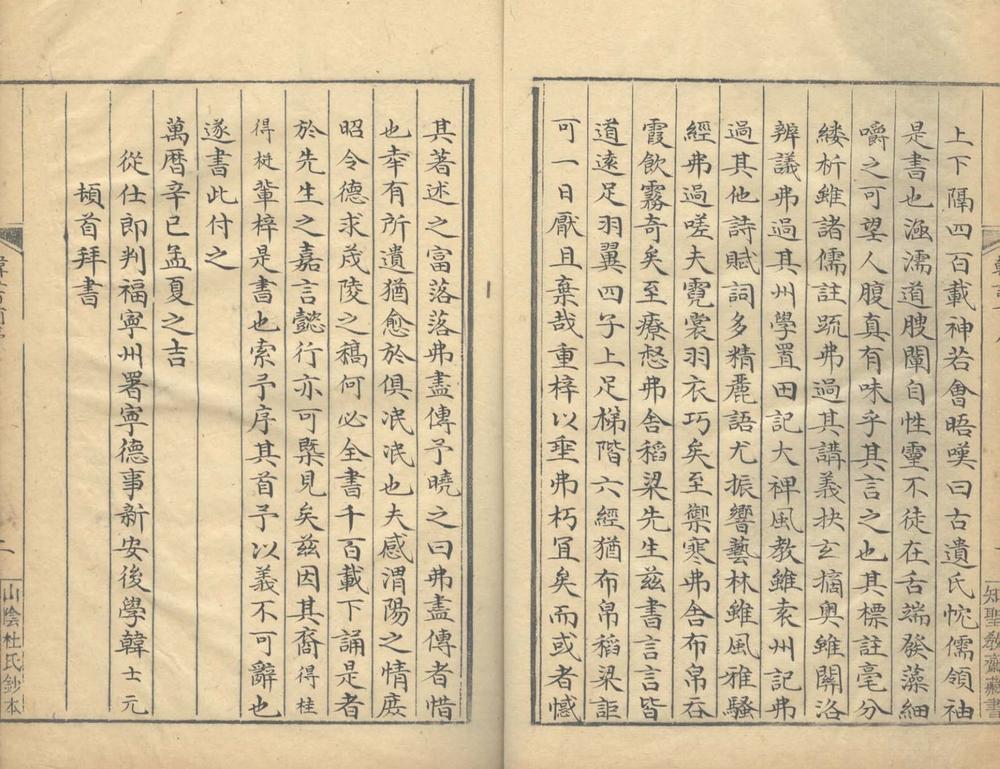 上下隔四百載神若會晤嘆曰古遺氏忱儒領袖
是書也涵濡道腴闡自性靈不徒在舌端發藻細
嚼之可望人腹真有味乎其言之也其標註毫分
縷析雖諸儒註疏弗過其講義抉玄摘奧雖關洛
辨議弗過其州學置田記大裨風教雖袁州記弗
過其他詩賦詞多精麗語尤振響藝林雖風雅騷
經弗過嗟夫霓裳羽衣巧矣至禦寒弗舍布帛吞
霞飲霧奇矣至療愁弗舍稻粱先生茲書言言皆
道遠足羽翼四子上足梯階六經猶布帛稻粱詎
可一日厭且棄哉重梓以垂弗朽冝矣而或者憾
其著述之富落落弗盡傳予曉之曰弗盡傳者惜
也幸有所遺猶愈於俱泯泯也夫感渭陽之情庻
昭令德求茂陵之稿何必全書千百載下誦是者
於先生之嘉言懿行亦可槩見矣茲因其裔得桂
得梃輩梓是書也索予序其首予以義不可辭也
遂書此付之
萬曆辛巳孟夏之吉
從仕郎判福寧州署寧德事新安後學韓士元
頓首拜書
知聖教齋藏書
二
山陰杜氏鈔本